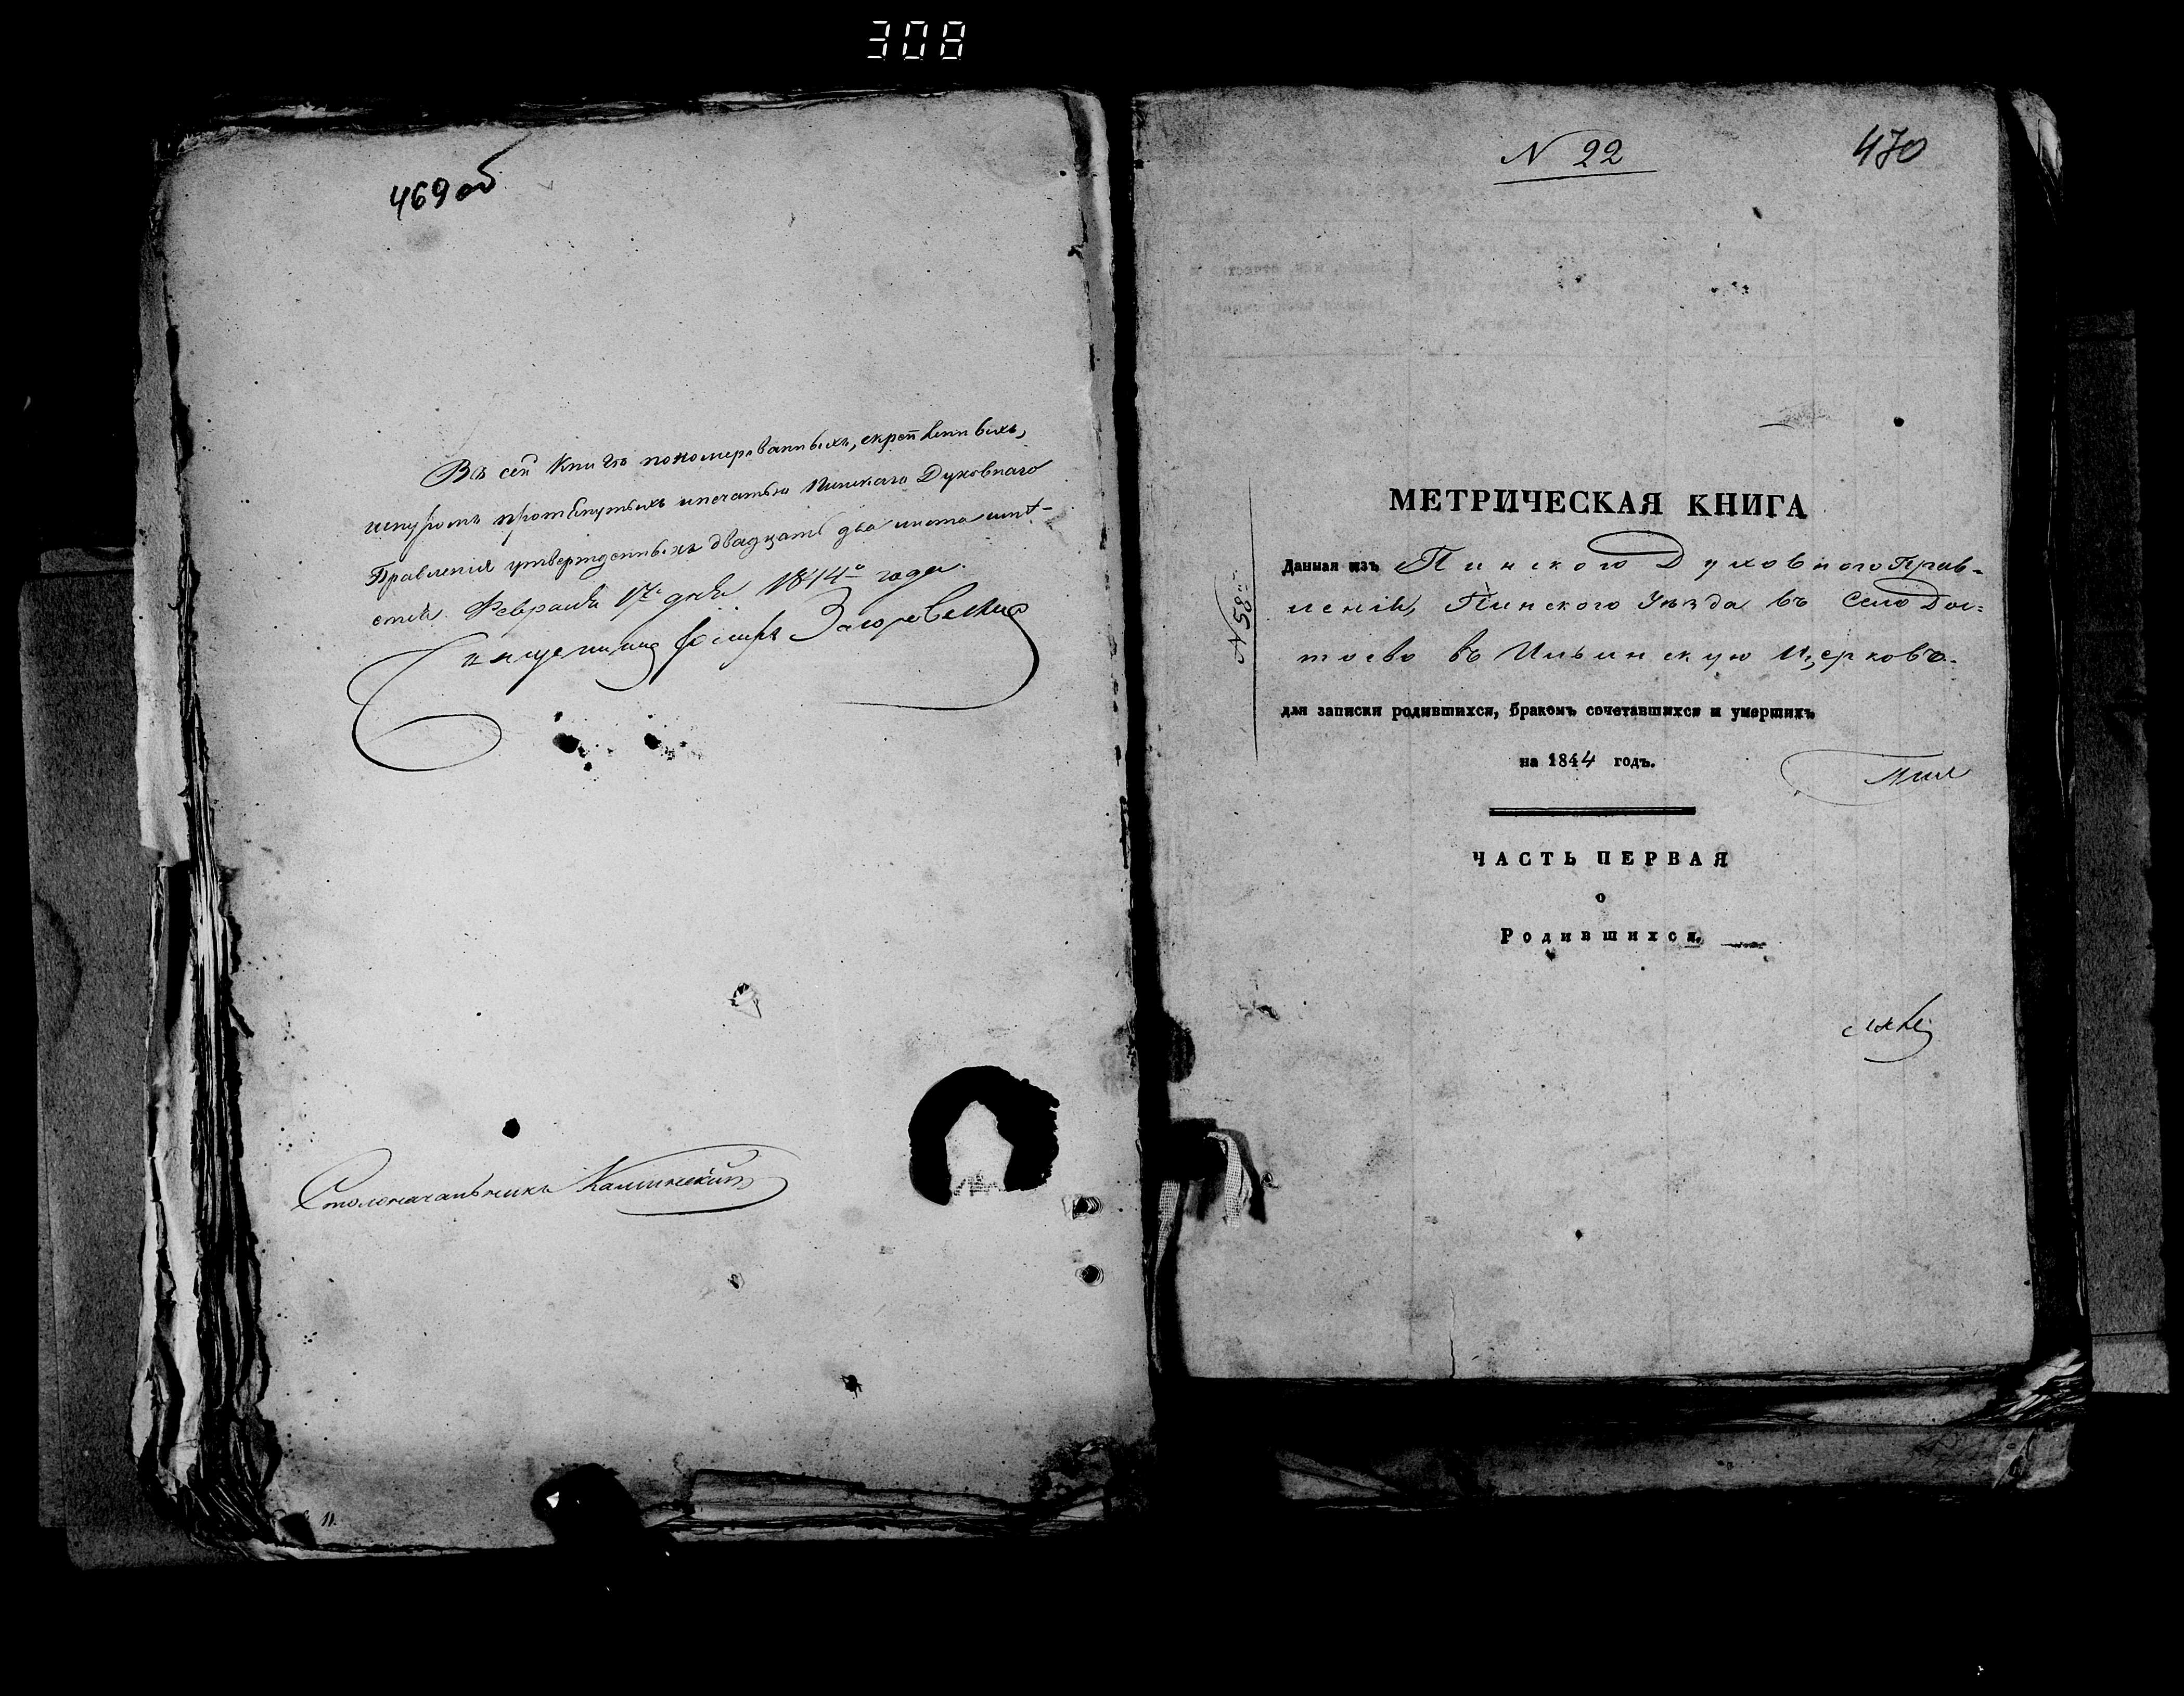 308
469 об
Въ сей Книгѣ пономерованныхъ, скрѣпленныхъ,
шнуромъ протянутыхъ и печатью Пинскаго Духовнаго
Правленія утвержденныхъ двадцать два листа имѣ-
ется. Февраля 17 дня 1844 года.
Священникъ Іосифъ Загоровскій
Столоначальникъ Калинскій
11.
N 22
470
N 58
МЕТРИЧЕСКАЯ КНИГА
Данная изъ Пинского Духовного Прав-
ленія, Пинского Уѣзда въ Село Дос-
тоево въ Ильинскую Церковь
для записки родившихся, бракомъ сочетавшихся и умершихъ
на 1844 годъ.
ЧАСТЬ ПЕРВАЯ
о
Родившихся.